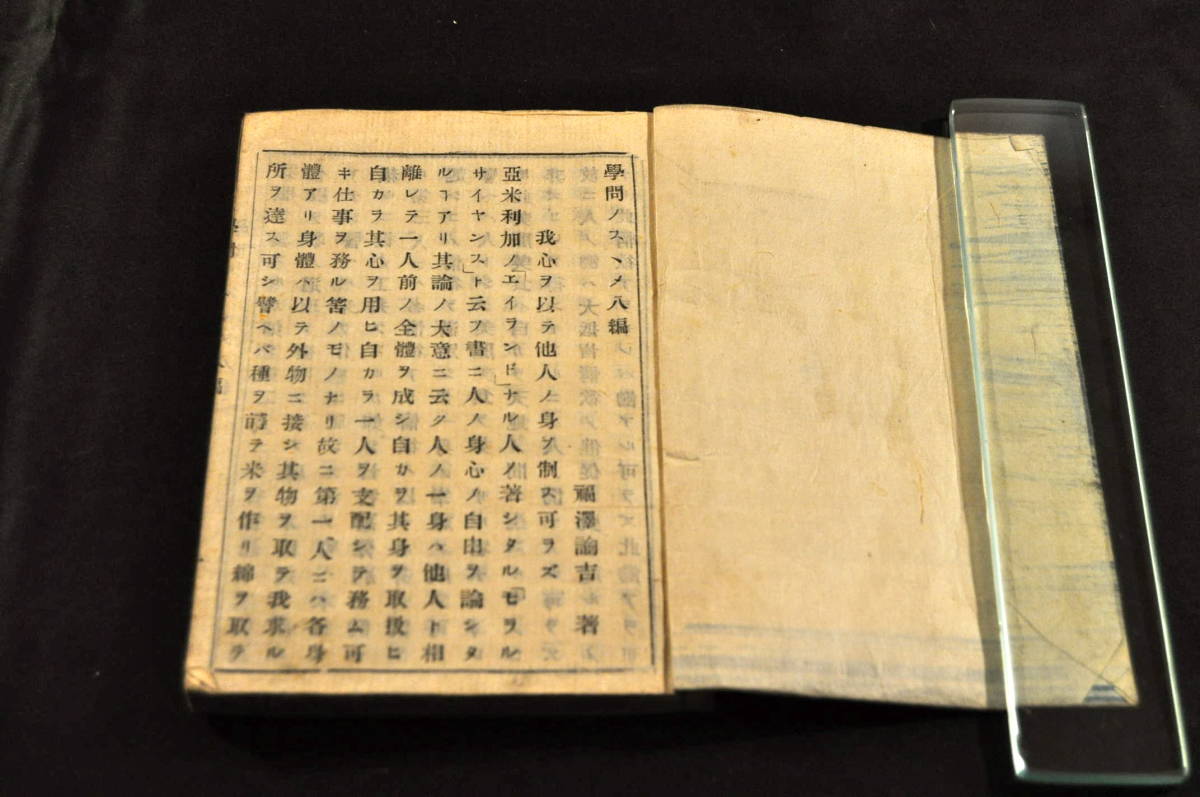 學問ノスヽメ八編
福澤諭吉 著
我心ヲ以テ他人ノ身ヲ制ス可ラズ
亞米利加ノ「エイランド」ナル人ノ著シタル「モラル
サイヤンス」ト云フ書ニ人ノ身心ノ自由ヲ論シタ
ルヿアリ其論ノ大意ニ云ク人ノ一身ハ他人ト相
離レテ一人前ノ全體ヲ成シ自カラ其身ヲ取扱ヒ
自カラ其心ヲ用ヒ自カラ一人ヲ支配シテ務ム可
キ仕事ヲ務ル筈ノモノナリ故ニ第一人ニハ各身
體アリ身體ハ以テ外物ニ接シ其物ヲ取テ我求ル
所ヲ達ス可シ譬ヘバ種ヲ蒔テ米ヲ作リ綿ヲ取テ